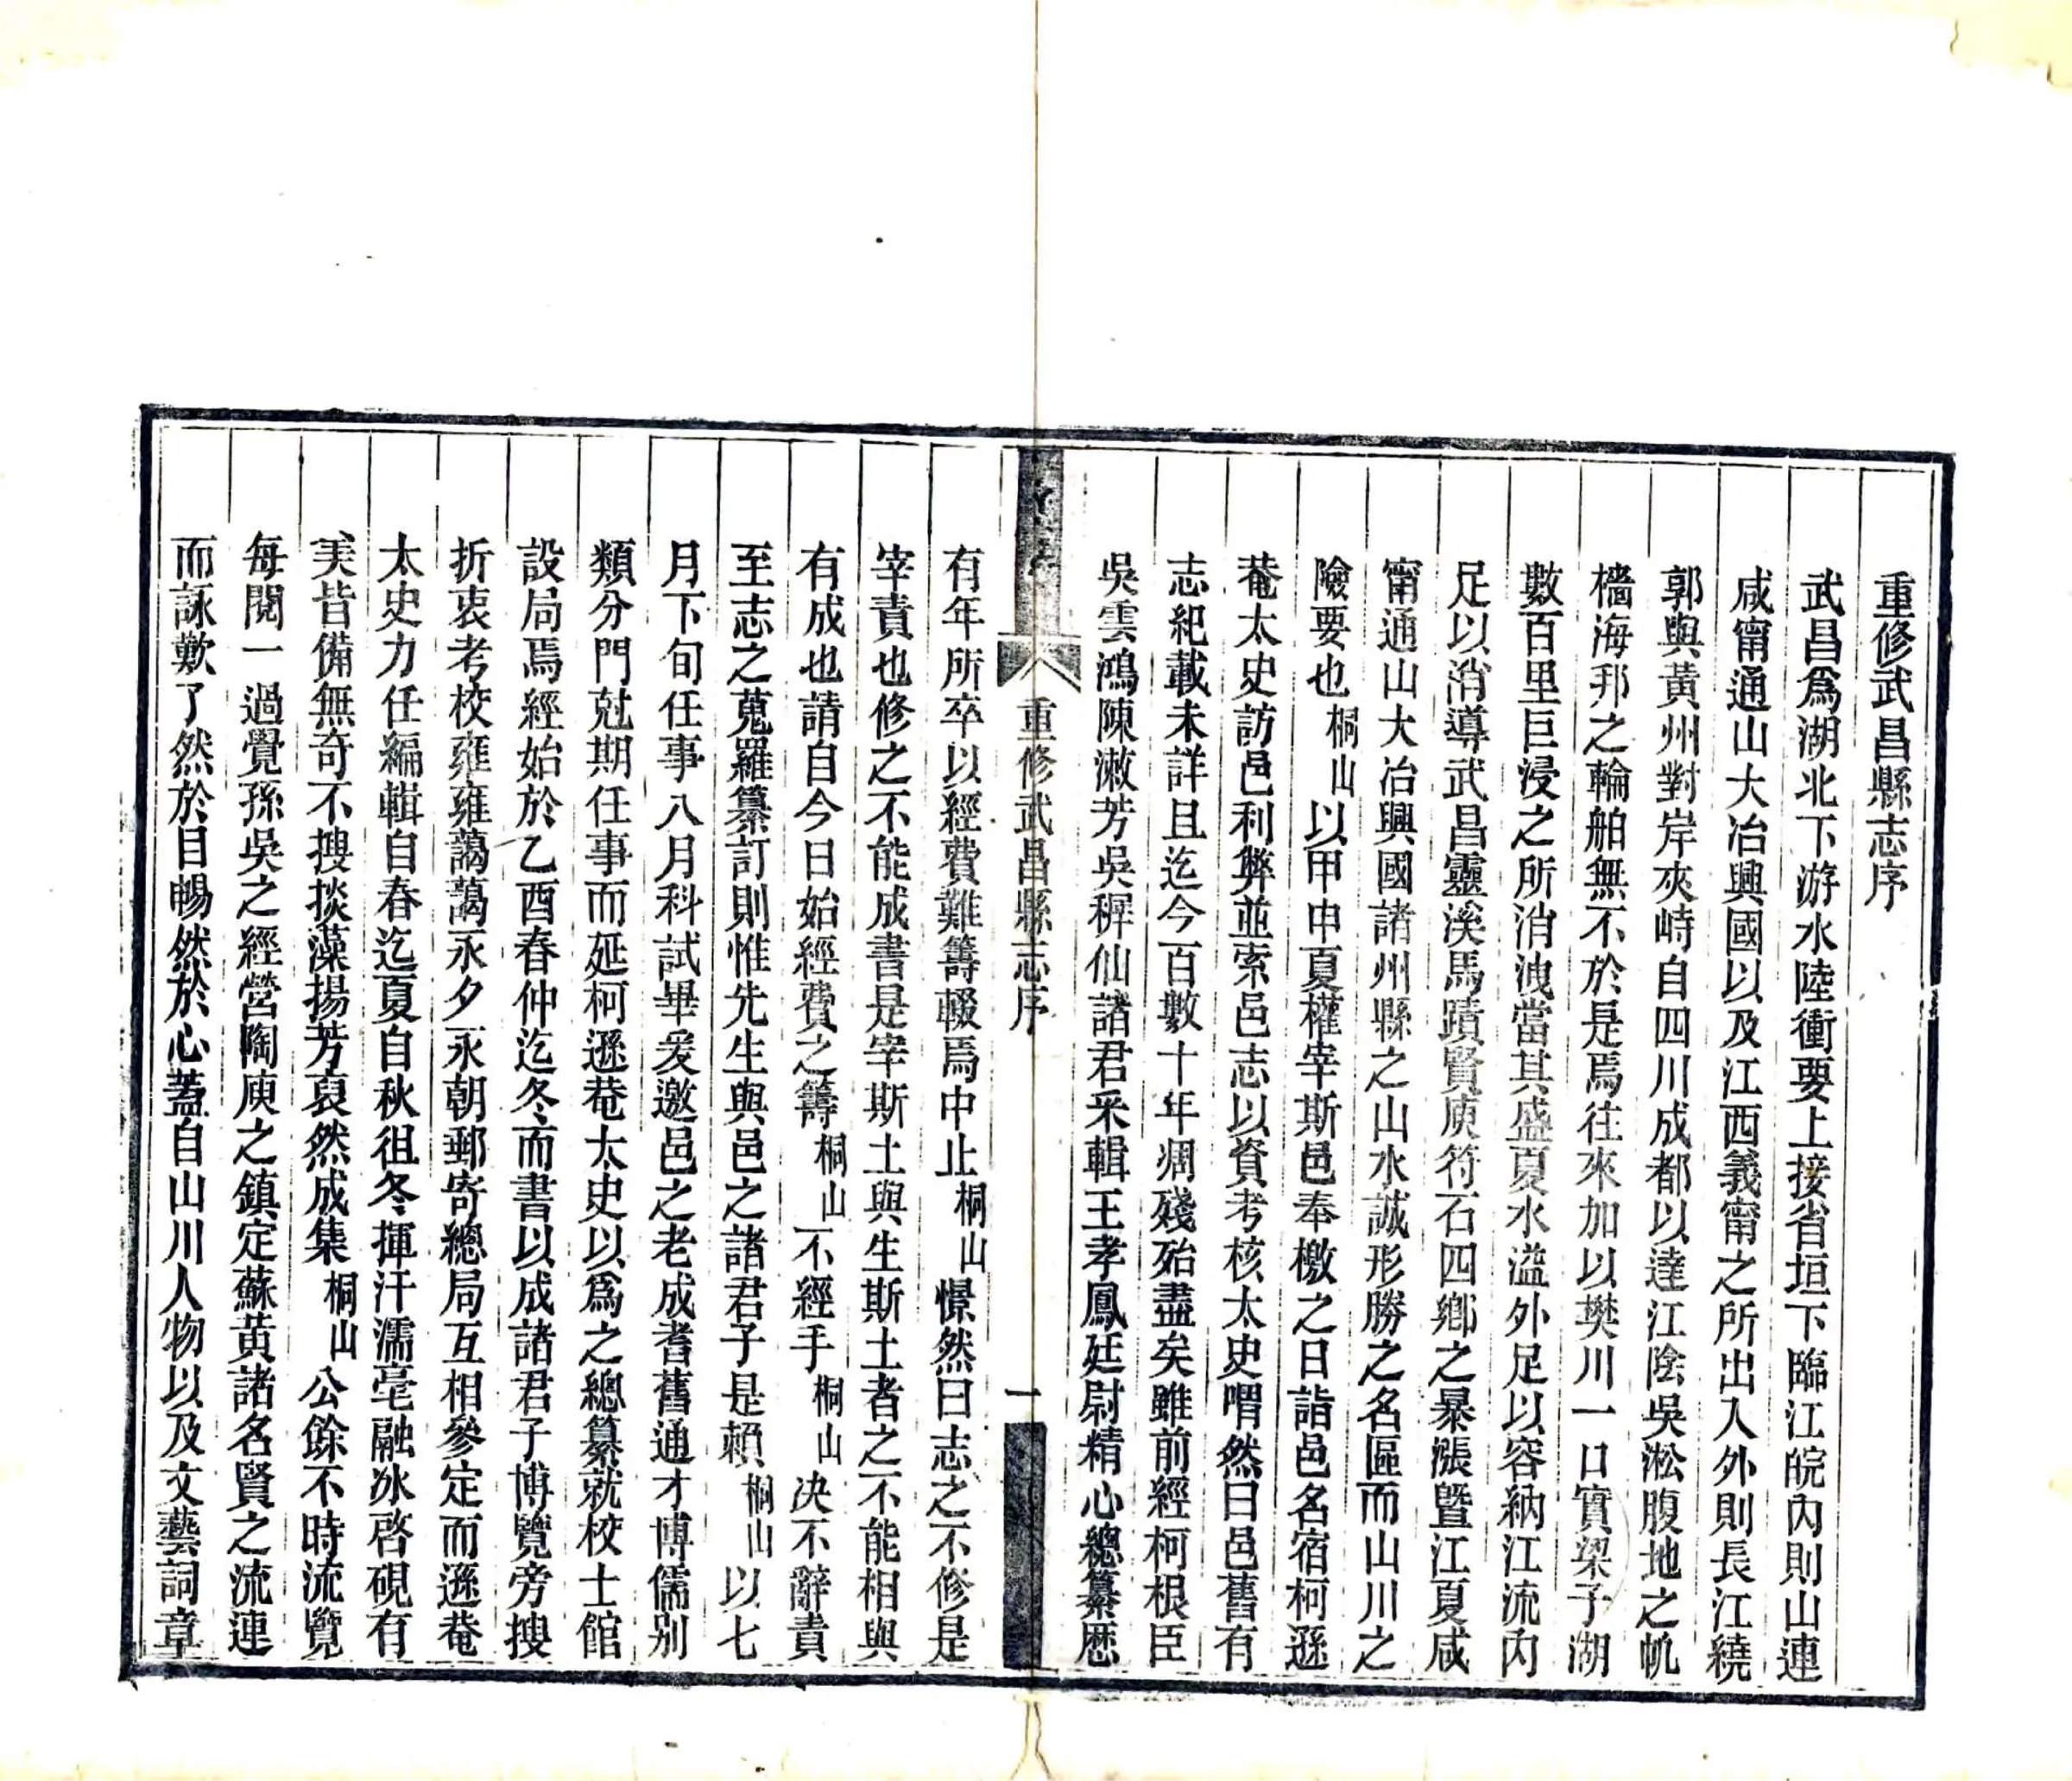 重修武昌縣志序
武昌爲湖北下游水陸衝要上接省垣下臨江皖內則山連
咸甯通山大冶興國以及江西義甯之所出入外則長江繞
郭與黃州對岸夾峙自四川成都以達江陰吳淞腹地之帆
檣海邦之輪舶無不於是焉往來加以樊川一口實梁子湖
數百里巨浸之所消洩當其盛夏水溢外足以容納江流內
足以消導武昌靈溪馬蹟賢庾符石四鄉之暴漲曁江夏咸
甯通山大冶興國諸州縣之山水誠形勝之名區而山川之
險要也桐山以甲申夏權宰斯邑奉檄之日詣邑名宿柯遜
菴太史訪邑利弊並索邑志以資考核太史喟然曰邑舊有
志紀載未詳且迄今百數十年凋殘殆盡矣雖前經柯根臣
吳雲鴻陳漱芳吳穉仙諸君采輯王孝鳳廷尉精心總纂歷
重修武昌縣志序
一
有年所卒以經費難籌輟焉中止桐山憬然曰志之不修是
宰責也修之不能成書是宰斯土與生斯土者之不能相與
有成也請自今日始經費之籌桐山不經手桐山决不辭責
至志之蒐羅纂訂則惟先生與邑之諸君子是賴桐山以七
月下旬任事八月科試畢爰邀邑之老成耆舊通才博儒別
類分門尅期任事而延柯遜菴太史以爲之總纂就校士館
設局焉經始於乙酉春仲迄冬而書以成諸君子博覽旁搜
折衷考校雍雍藹藹永夕永朝郵寄總局互相參定而遜菴
太史力任編輯自春迄夏自秋徂冬揮汗濡毫融冰啓硯有
美皆備無奇不搜掞藻揚芳裒然成集桐山公餘不時流覽
每閱一過覺孫吳之經營陶庾之鎮定蘇黃諸名賢之流連
而詠歎了然於目暢然於心蓋自山川人物以及文藝詞章